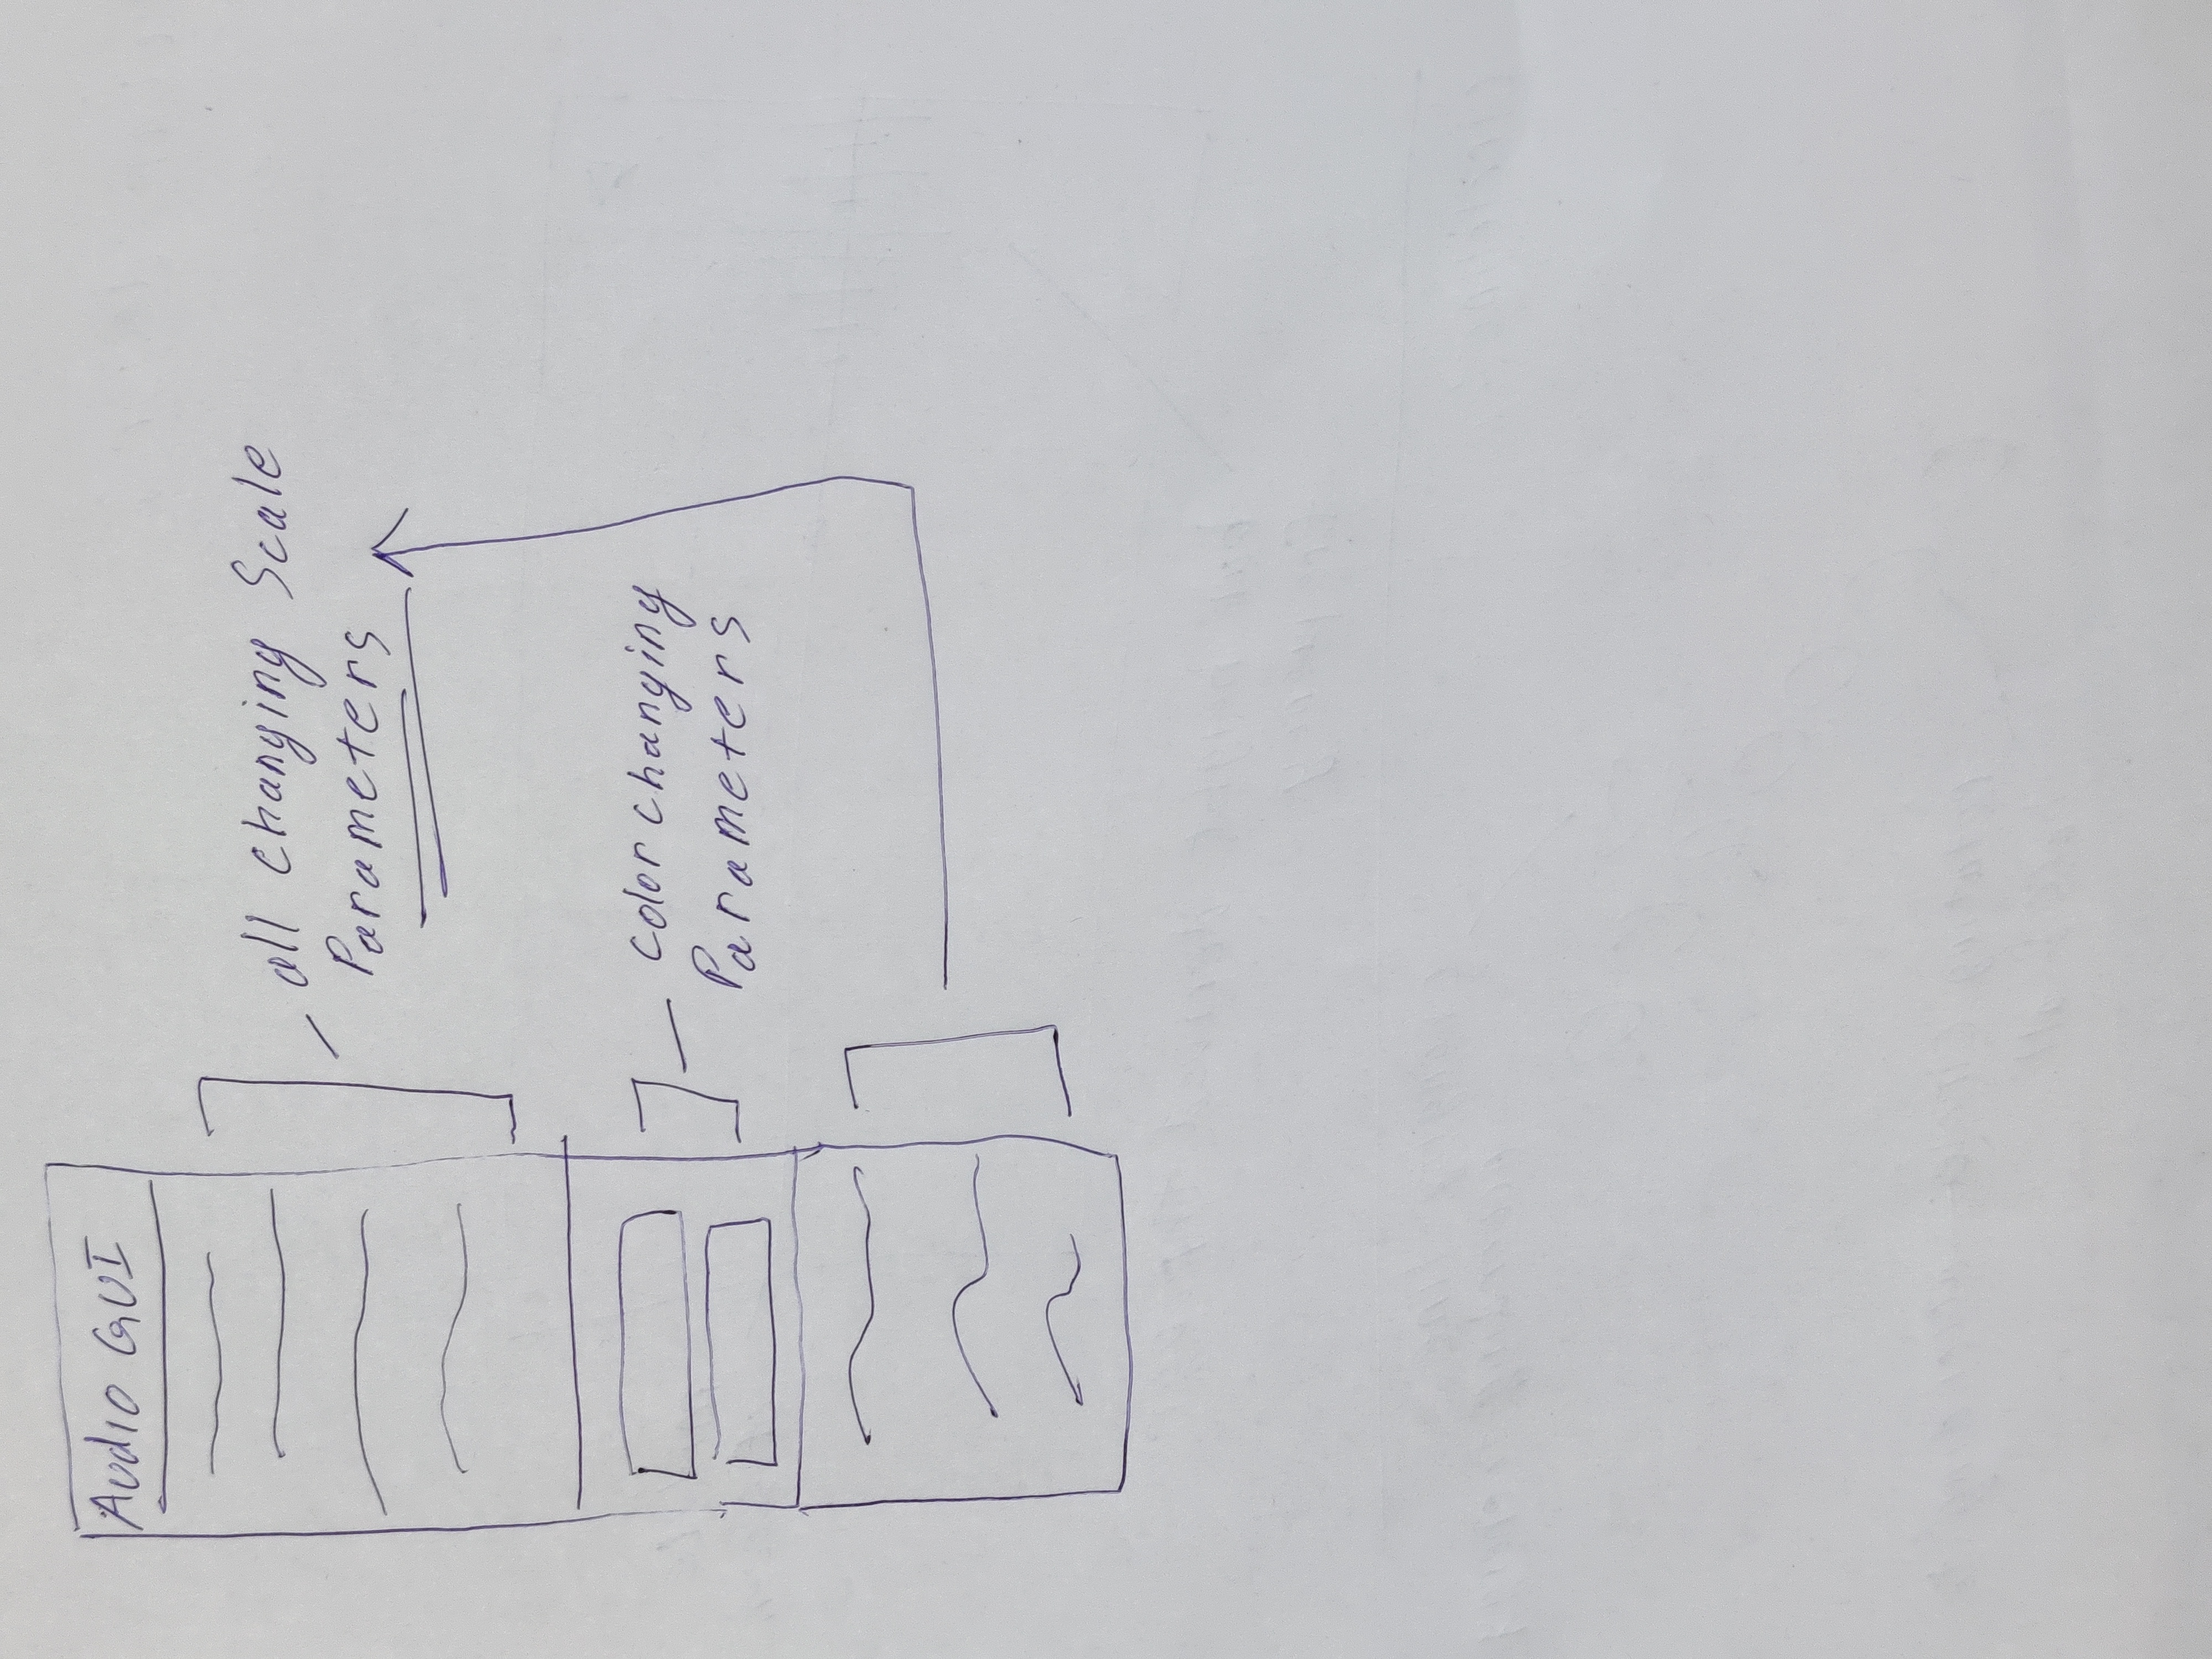 Audio GUI
all changing Scale
Parameters
color changing
Parameters